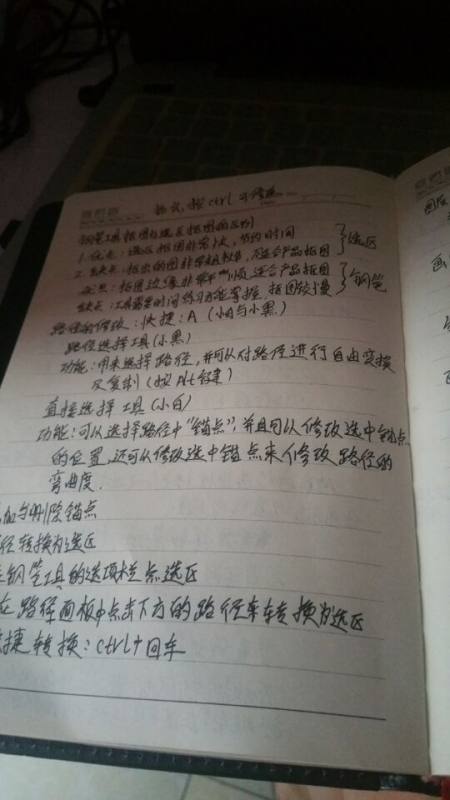 抠完按ctrl+
钢笔工具抠图与选区抠图的区别
1.优点:选区抠图非常快,节约时间 }选区
缺点:抠出的图非常粗糙,不适合产品抠图
2.优点:抠图边缘非常平顺,适合产品抠图 }钢笔
缺点:工具需要时间练习方能掌握,抠图较慢
路径的修改:快捷:A(小白与小黑)
路径选择工具(小黑)
功能:用来选择路径,并可以对路径进行自由变换
及复制(按Alt键)
直接选择工具(小白)
功能:可以选择路径中“锚点”,并且可以修改选中锚点
的位置,还可以修改选中锚点来修改路径的
弯曲度.
加与删除锚点
径转换为选区
钢笔工具的选项栏点选区
路径面板中点击下方的路径转换为选区
捷转换:ctrl+回车
图层
画